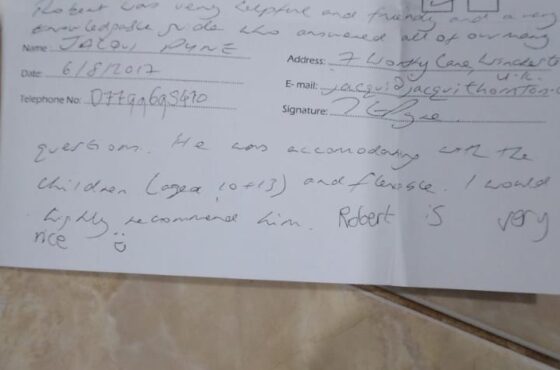 Robert was very helpful and friendly and a very
knowledgable guide who answered all of our many
Name: JACQUI PYNE
Address: 7 Worthy Lane, Winchester
U.K.
Date: 6/8/2017
E-mail: jacqui@jacquithornton.
Telephone No:
Signature:
questions. He was accomodating with the
children (aged 10+13) and flexible. I would
highly recommend him. Robert is very
nice